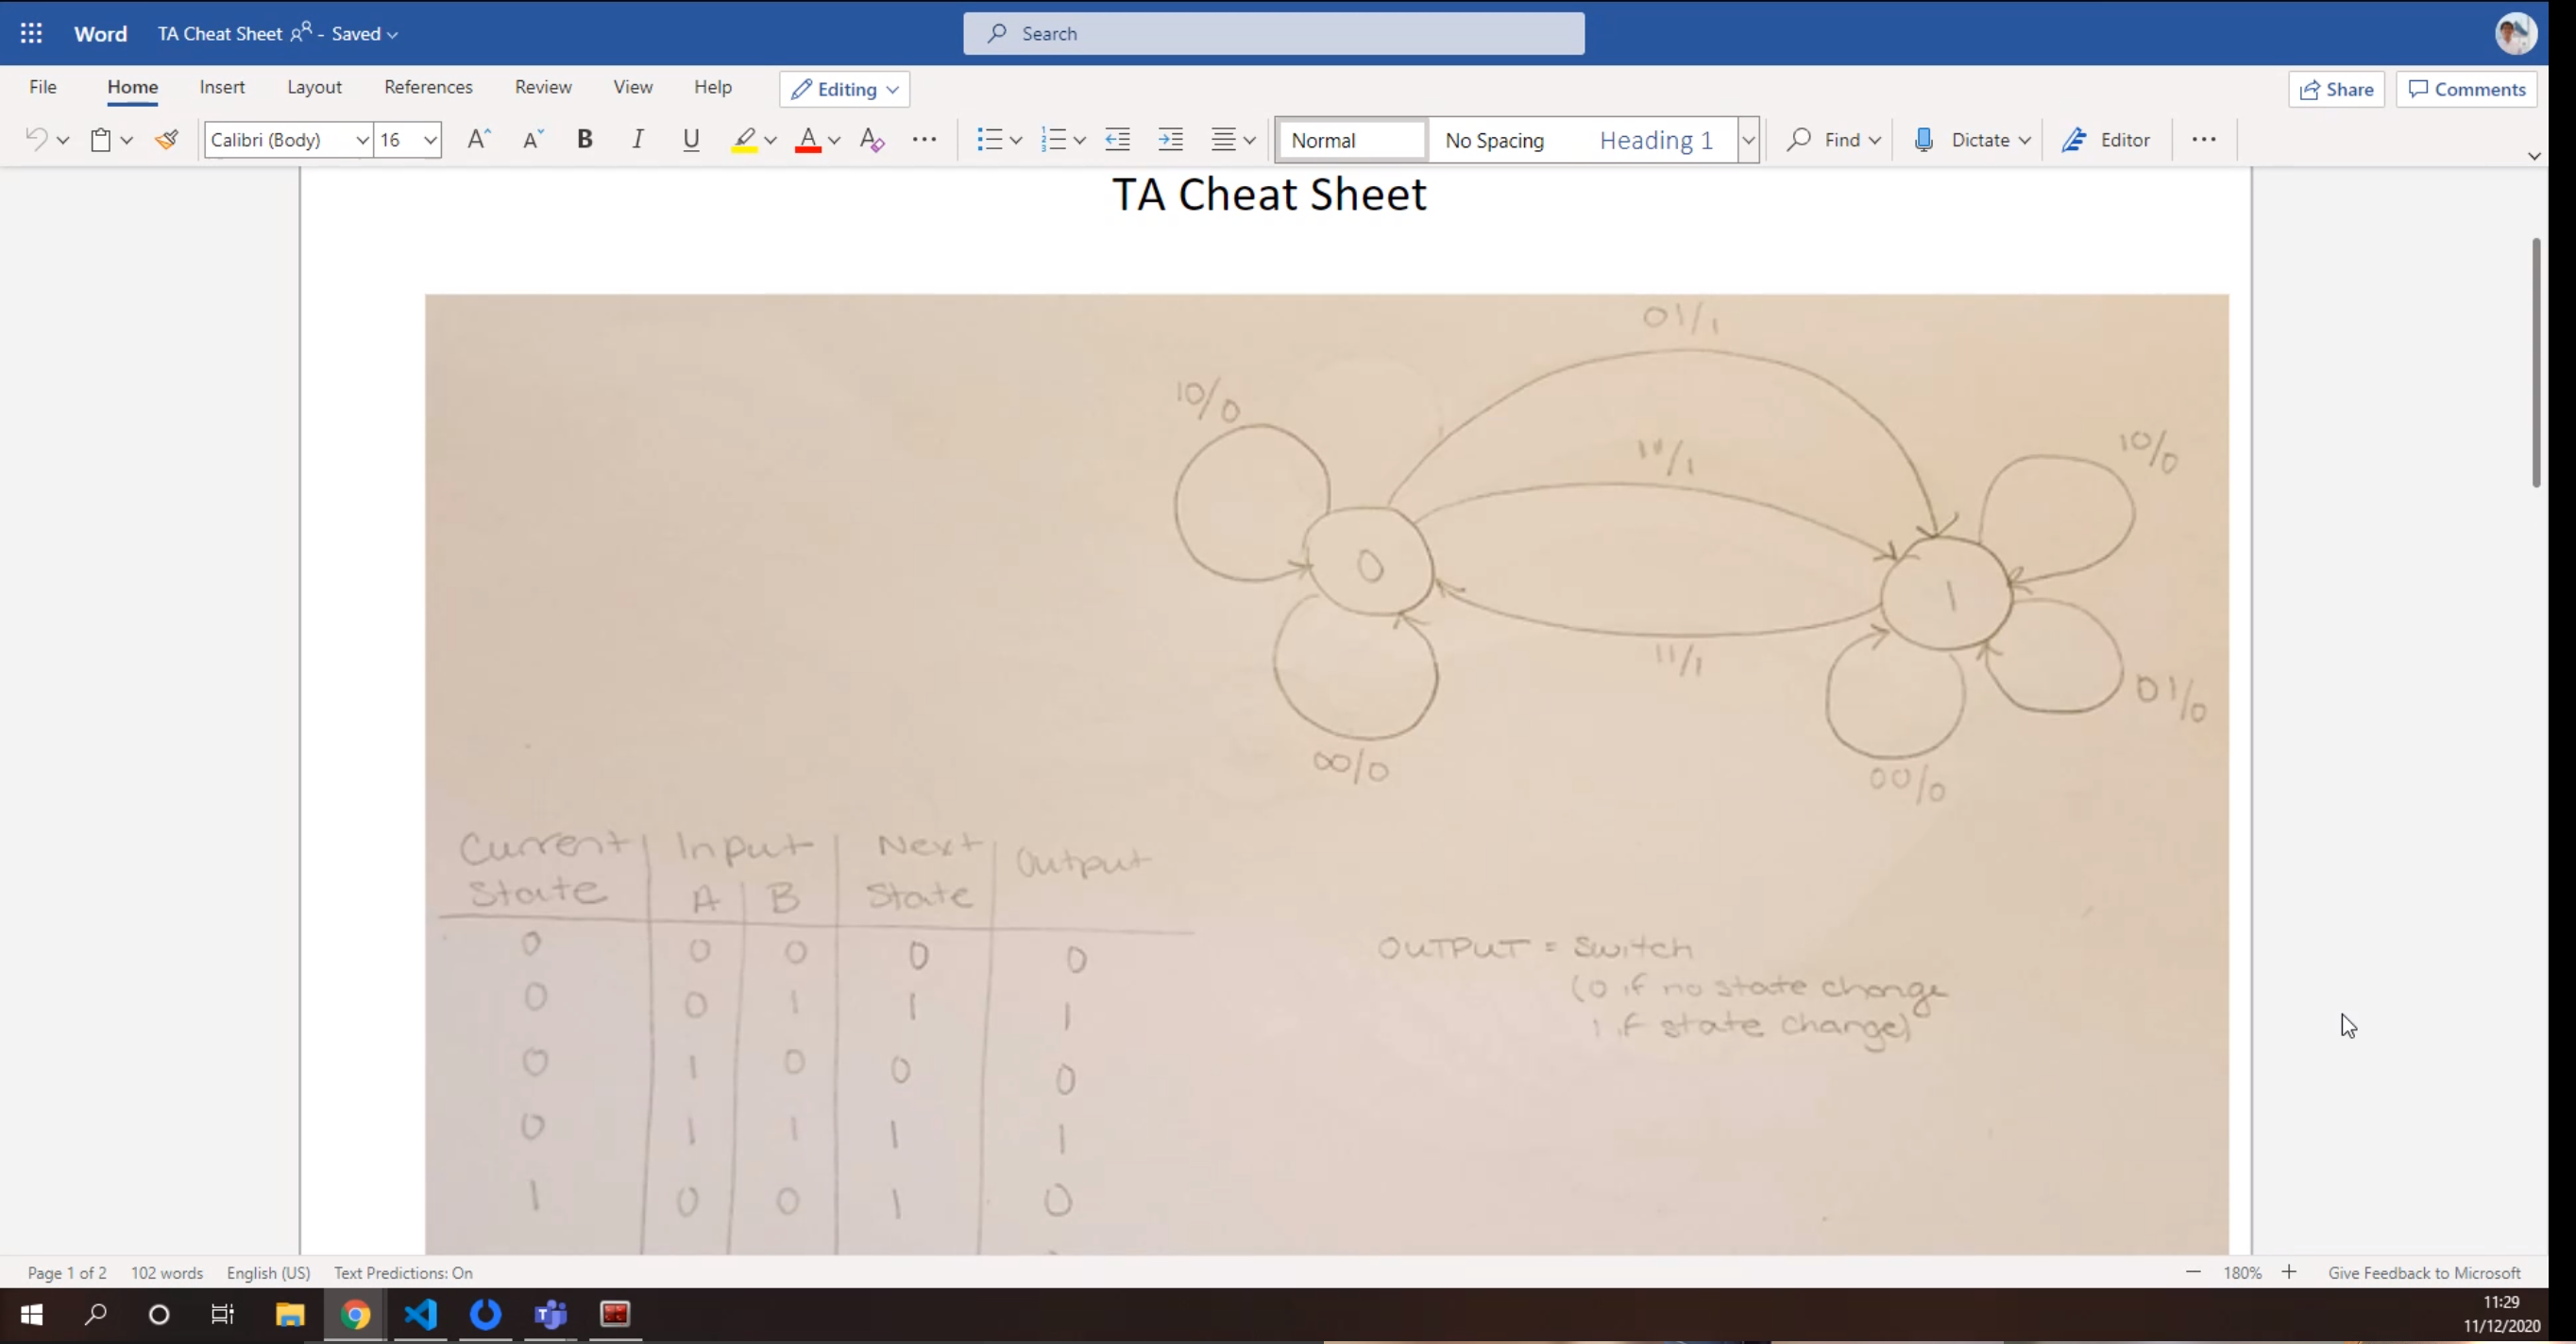 Word TA Cheat Sheet - Saved Search
File Home Insert Layout References Review View Help Editing Share Comments
Calibri (Body) 16 A A B I U A A Normal No Spacing Heading 1 Find Dictate Editor
TA Cheat Sheet
01/1
10/0
11/1
10/0
0
1
11/1
01/0
00/0
00/0
Current State Input A B Next State Output
0 0 0 0 0
0 0 1 1 1
0 1 0 0 0
0 1 1 1 1
1 0 0 1 0
OUTPUT = Switch
(0 if no state change
1 if state change)
Page 1 of 2 102 words English (US) Text Predictions: On 180% Give Feedback to Microsoft
11:29
11/12/2020